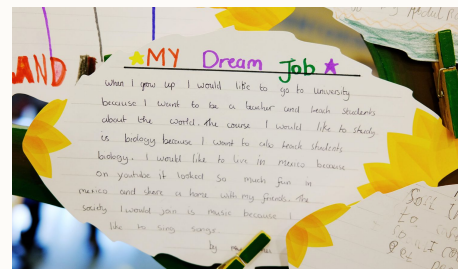 MY Dream Job
AND
when I grow up I would like to go to university
because I want to be a teacher and teach students
about the world. The course I would like to study
is biology because I want to also teach students
biology. I would like to live in mexico because
on youtube it looked so much fun in
mexico and share a home with my friends. The
society I would join is music because I
like to sing songs.
by